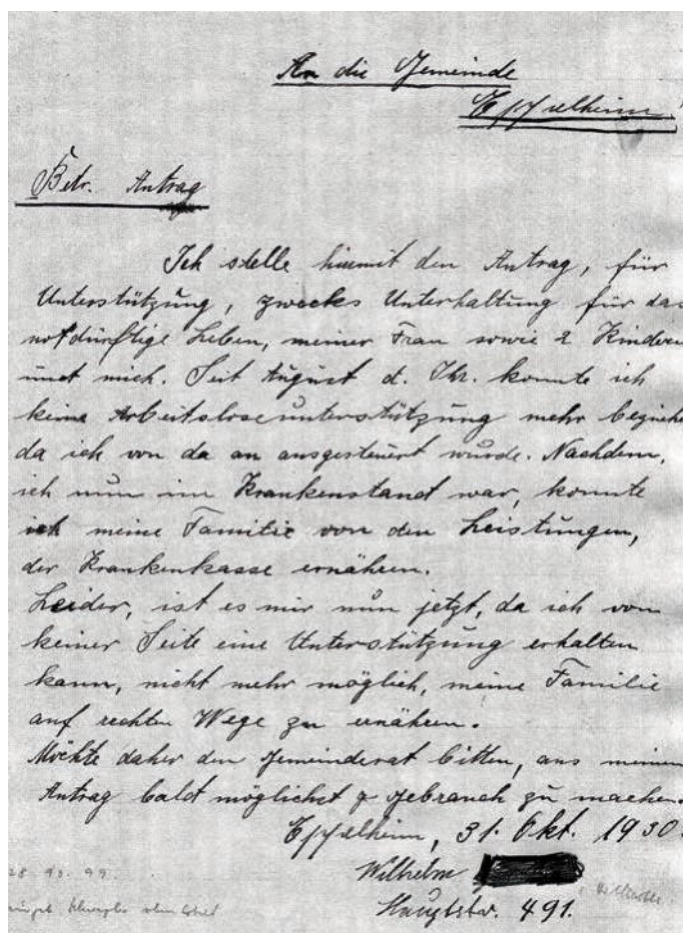 An die Gemeinde
Eppelheim!
Betr. Antrag
Ich stelle hiermit den Antrag, für
Unterstützung, zwecks Unterhaltung für das
notdürftige Leben, meiner Frau sowie 2 Kindern
und mich. Seit August d. Jhr. konnte ich
keine Arbeitsloseunterstützung mehr beziehe
da ich von da an ausgesteuert wurde. Nachdem,
ich nun im Krankenstand war, konnte
ich meine Familie von den Leistungen,
der Krankenkasse ernähren.
Leider, ist es mir nun jetzt, da ich von
keiner Seite eine Unterstützung erhalten
kann, nicht mehr möglich, meine Familie
auf rechten Wege zu ernähren.
Möchte daher den Gemeinderat bitten, aus meinem
Antrag bald möglichst Gebrauch zu machen.
Eppelheim, 31. Okt. 1930.
Wilhelm
Hauptstr. 491.